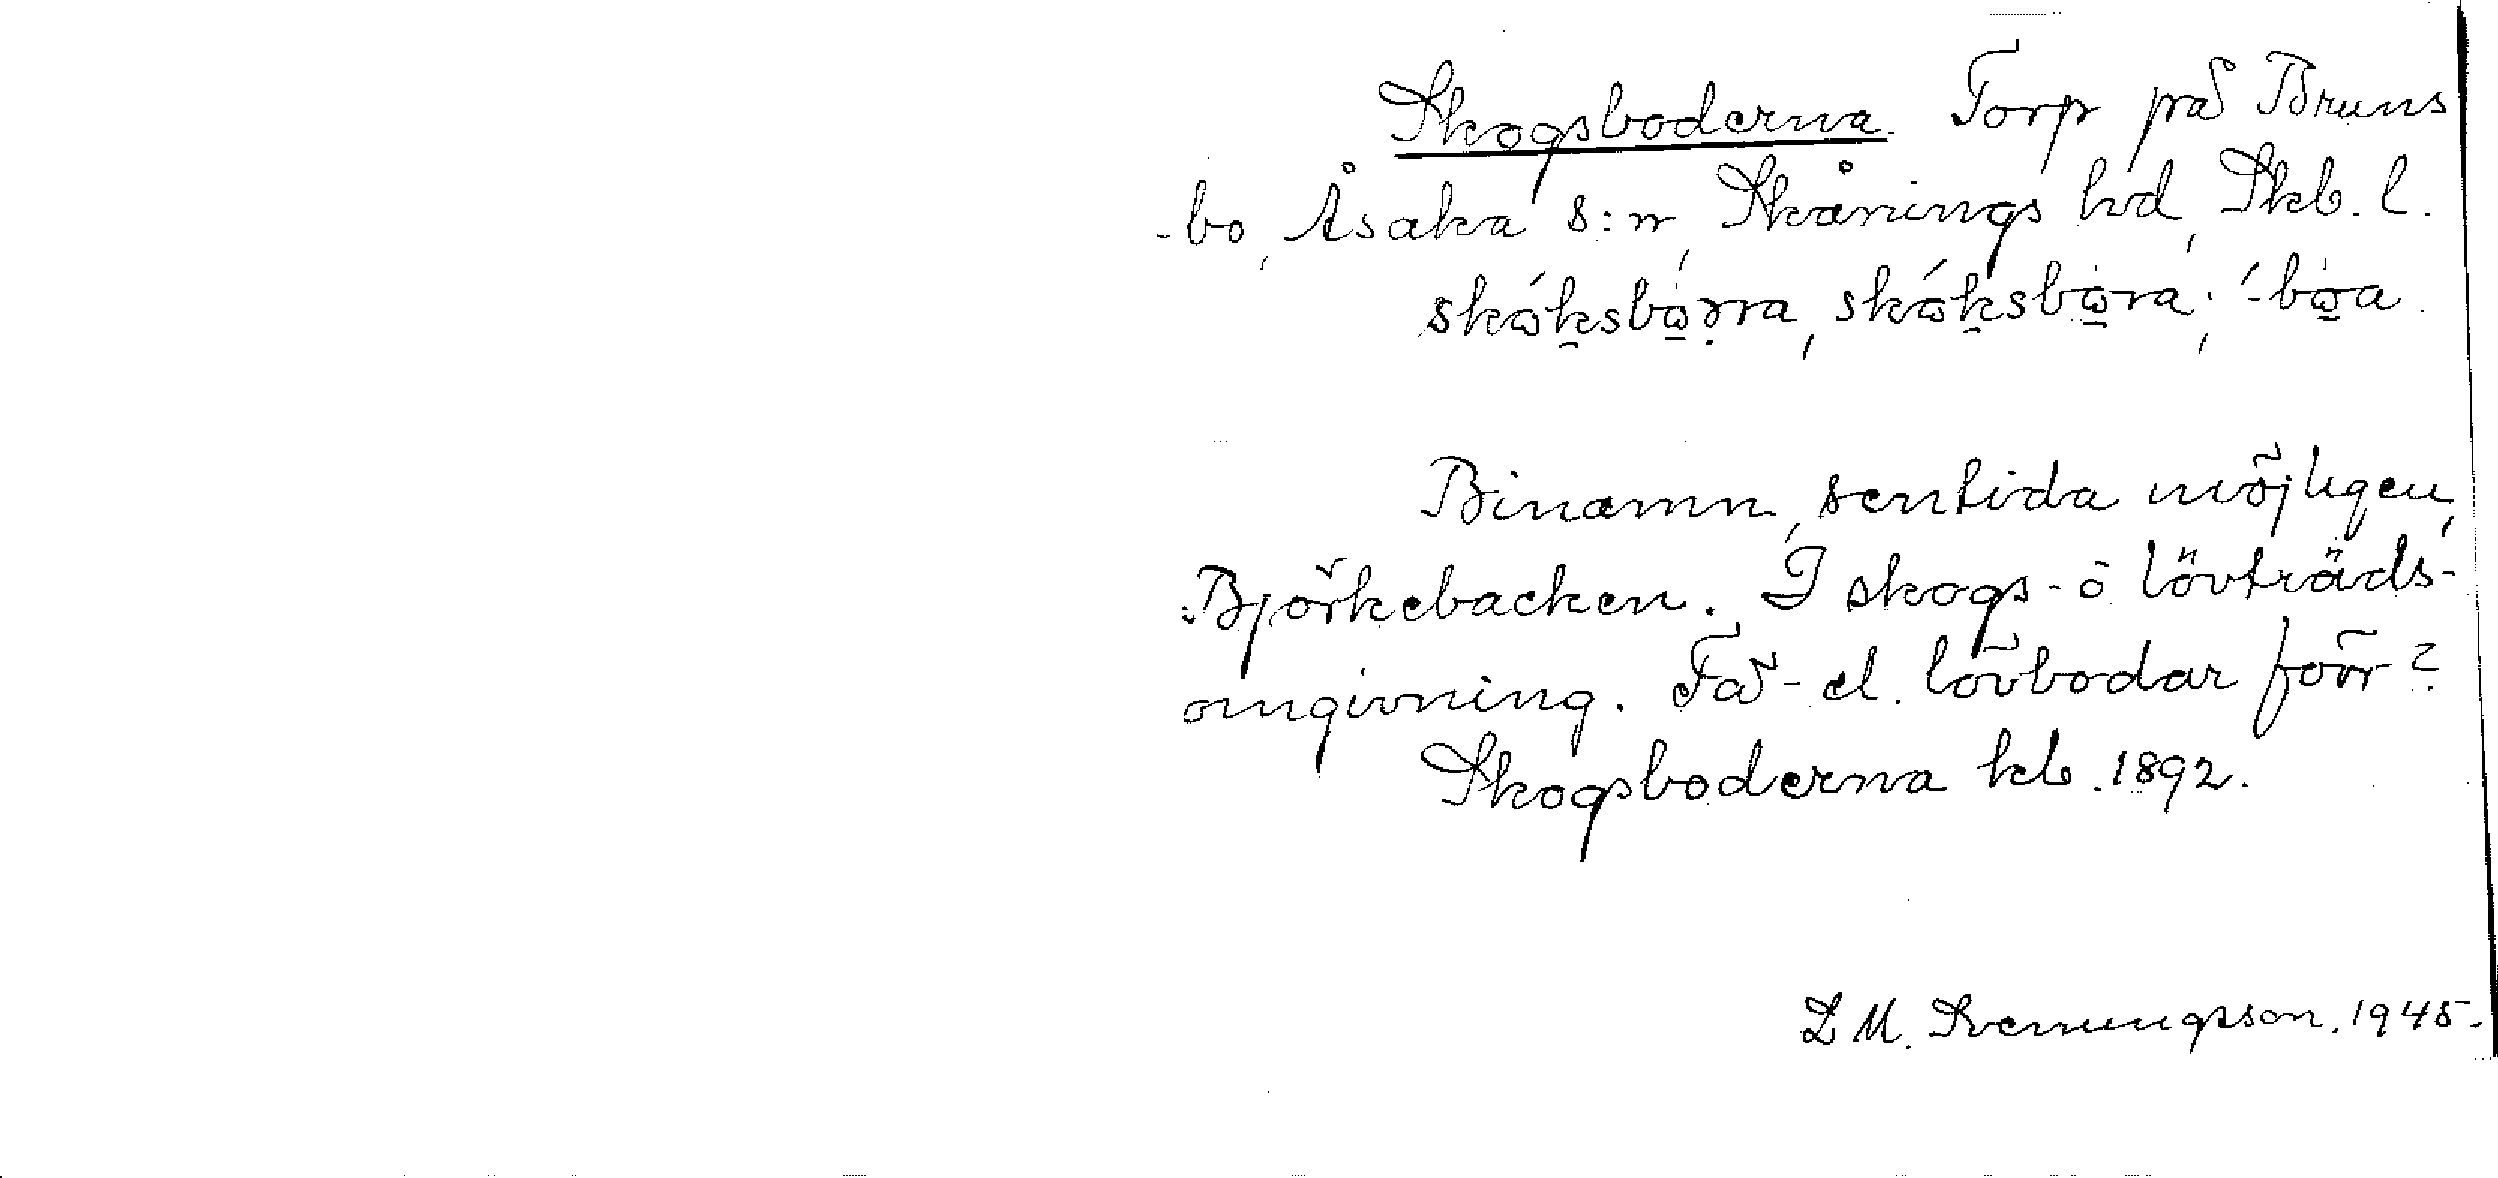 Skogsboderna. Torp på Bruns
-bo, Åsaka s:n, Skånings hd, Skb. l.
skɷ́ksbɷrra, skɷ́ksbɷra; ́-bɷa.
Binamn, sentida möjligen,
Björkebacken. I skogs- o lövträds-
omgivning. Få- el. lövbodar förr?
Skogsboderna kb. 1892.
D M. Svenungsson. 1945.